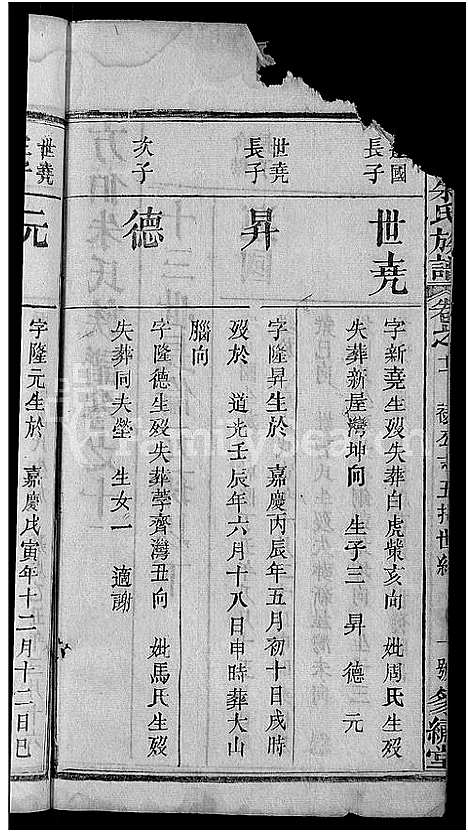 朱氏族譜
參繡堂
國
長子
世堯
字新堯生歿失葬白虎棠亥向 妣周氏生歿
失葬新屋灣坤向 生子三 昇 德 元
世堯
長子
昇
字隆昇生於 嘉慶丙辰年五月初十日戌時
歿於 道光壬辰年六月十八日申時葬大山
腦向
次子
德
字隆德生歿失葬學齊灣丑向 妣馬氏生歿
失葬同夫塋 生女一 適謝
世堯
元
字隆元生於 嘉慶戊寅年十二月十二日巳